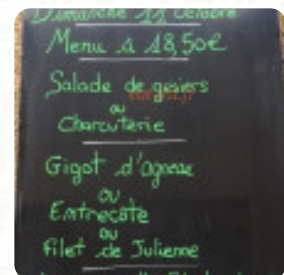 Dimanche 11 Octobre
Menu à 18,50€
Salade de gesiers
ou
Charcuterie
Gigot d'agneau
ou
Entrecôte
ou
Filet de Julienne